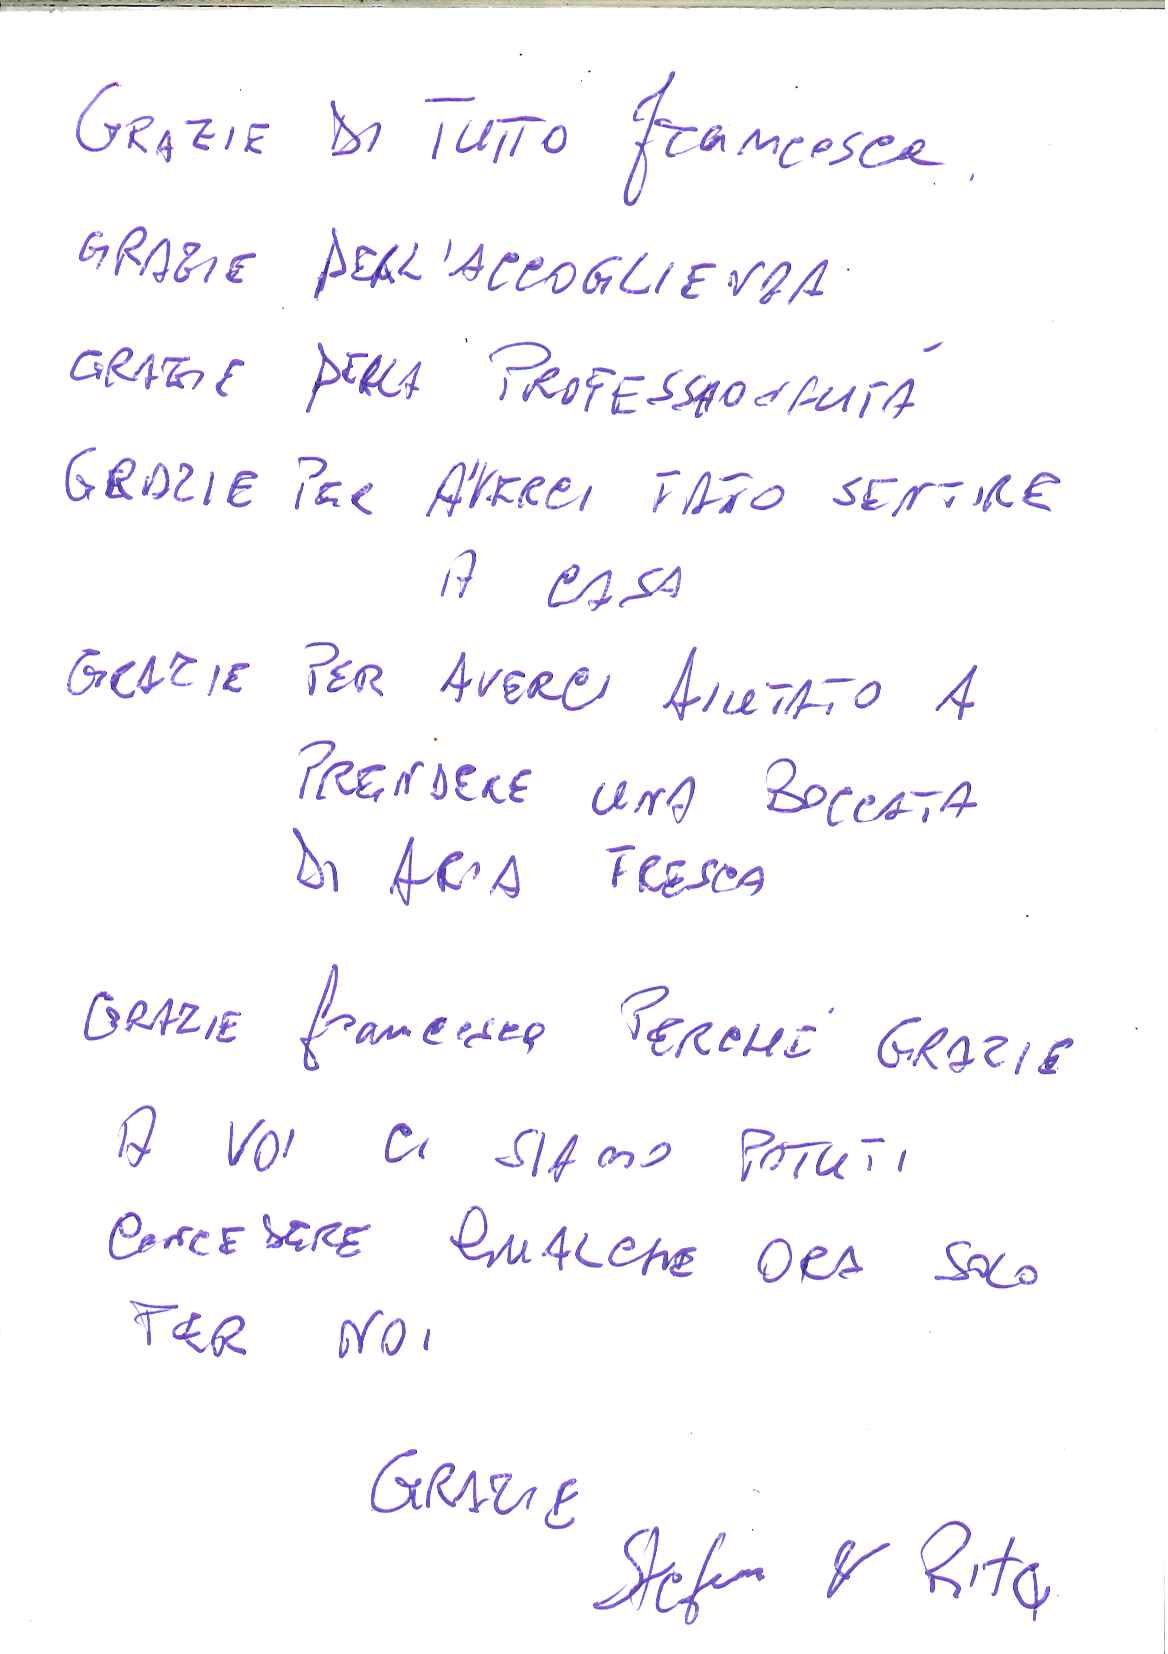 GRAZIE DI TUTTO Francesca.
GRAZIE DELL'ACCOGLIENZA
GRAZIE DELLA PROFESSIONALITÁ
GRAZIE PER AVERCI FATTO SENTIRE
A CASA
GRAZIE PER AVERCI AIUTATO A
PRENDERE UNA BOCCATA
DI ARIA FRESCA
GRAZIE Francesca PERCHÉ GRAZIE
A VOI CI SIAMO POTUTI
CONCEDERE QUALCHE ORA SOLO
PER NOI
GRAZIE
& Rita